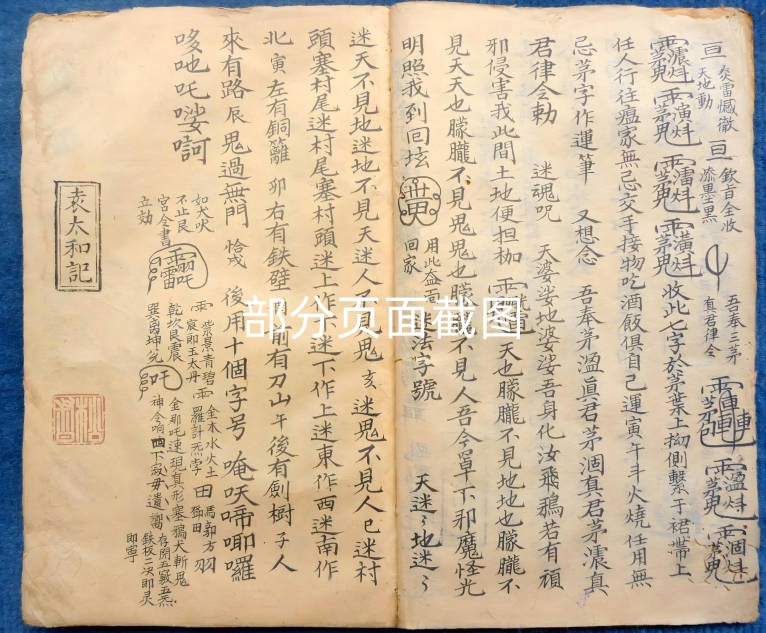 亘
炎雷憾徹
天地動
亘
欽旨全收
漆墨黑
吾奉三茅
真君律令
收此七字於茅葉上拗側繫于裙帶上
任人行往瘟家無忌交手接物吃酒飯俱自己運寅午斗火燒任用無
忌茅字作運筆 又想念 吾奉茅溫真君茅涸真君茅瀼真
君律令勅 迷魂呪 天婆娑地婆娑吾身化汝飛鴉若有頑
邪侵害我此間土地便担枷 天也朦朧不見地地也朦朧不
見天天也朦朧不見鬼鬼也朦朧不見人吾令罩下邪魔怪光
明照我到回垓 回家 用此 法字號 天迷〻地迷〻
迷天不見地迷地不見天迷人不見鬼亥迷鬼不見人巳迷村
頭塞村尾迷村尾塞村頭迷上作下迷下作上迷東作西迷南作
北寅左有銅籬卯右有鉄壁 前有刀山午後有劍樹子人
來有路辰鬼過無門 後用十個字号 唵 啼唧囉
哆吔吒 訶
如犬吠
不止艮
宮全書
立効
紫景青碧
宸即玉太丹
羅計炁孛
金木水火土
田
馬郭方
鄧田
羽
乾坎艮震
巽离坤兌
吒
金那吒速現真形塞鴉犬斬鬼
神令响 下寂毋遺漏存開五竅五炁
鉄板二次即灵
即寧
袁太和記
部分页面截图